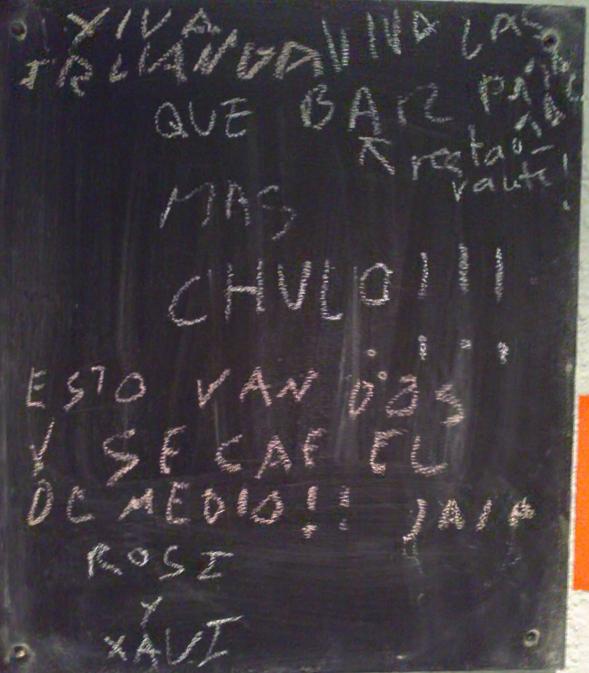 VIVA
IRLANDA VIVA LAS
QUE BAR
restau-
rante!
MAS
CHULO!!!
ESTO VAN DOS
Y SE CAE EL
DE MEDIO!! JAJA
ROSI
Y
XAVI